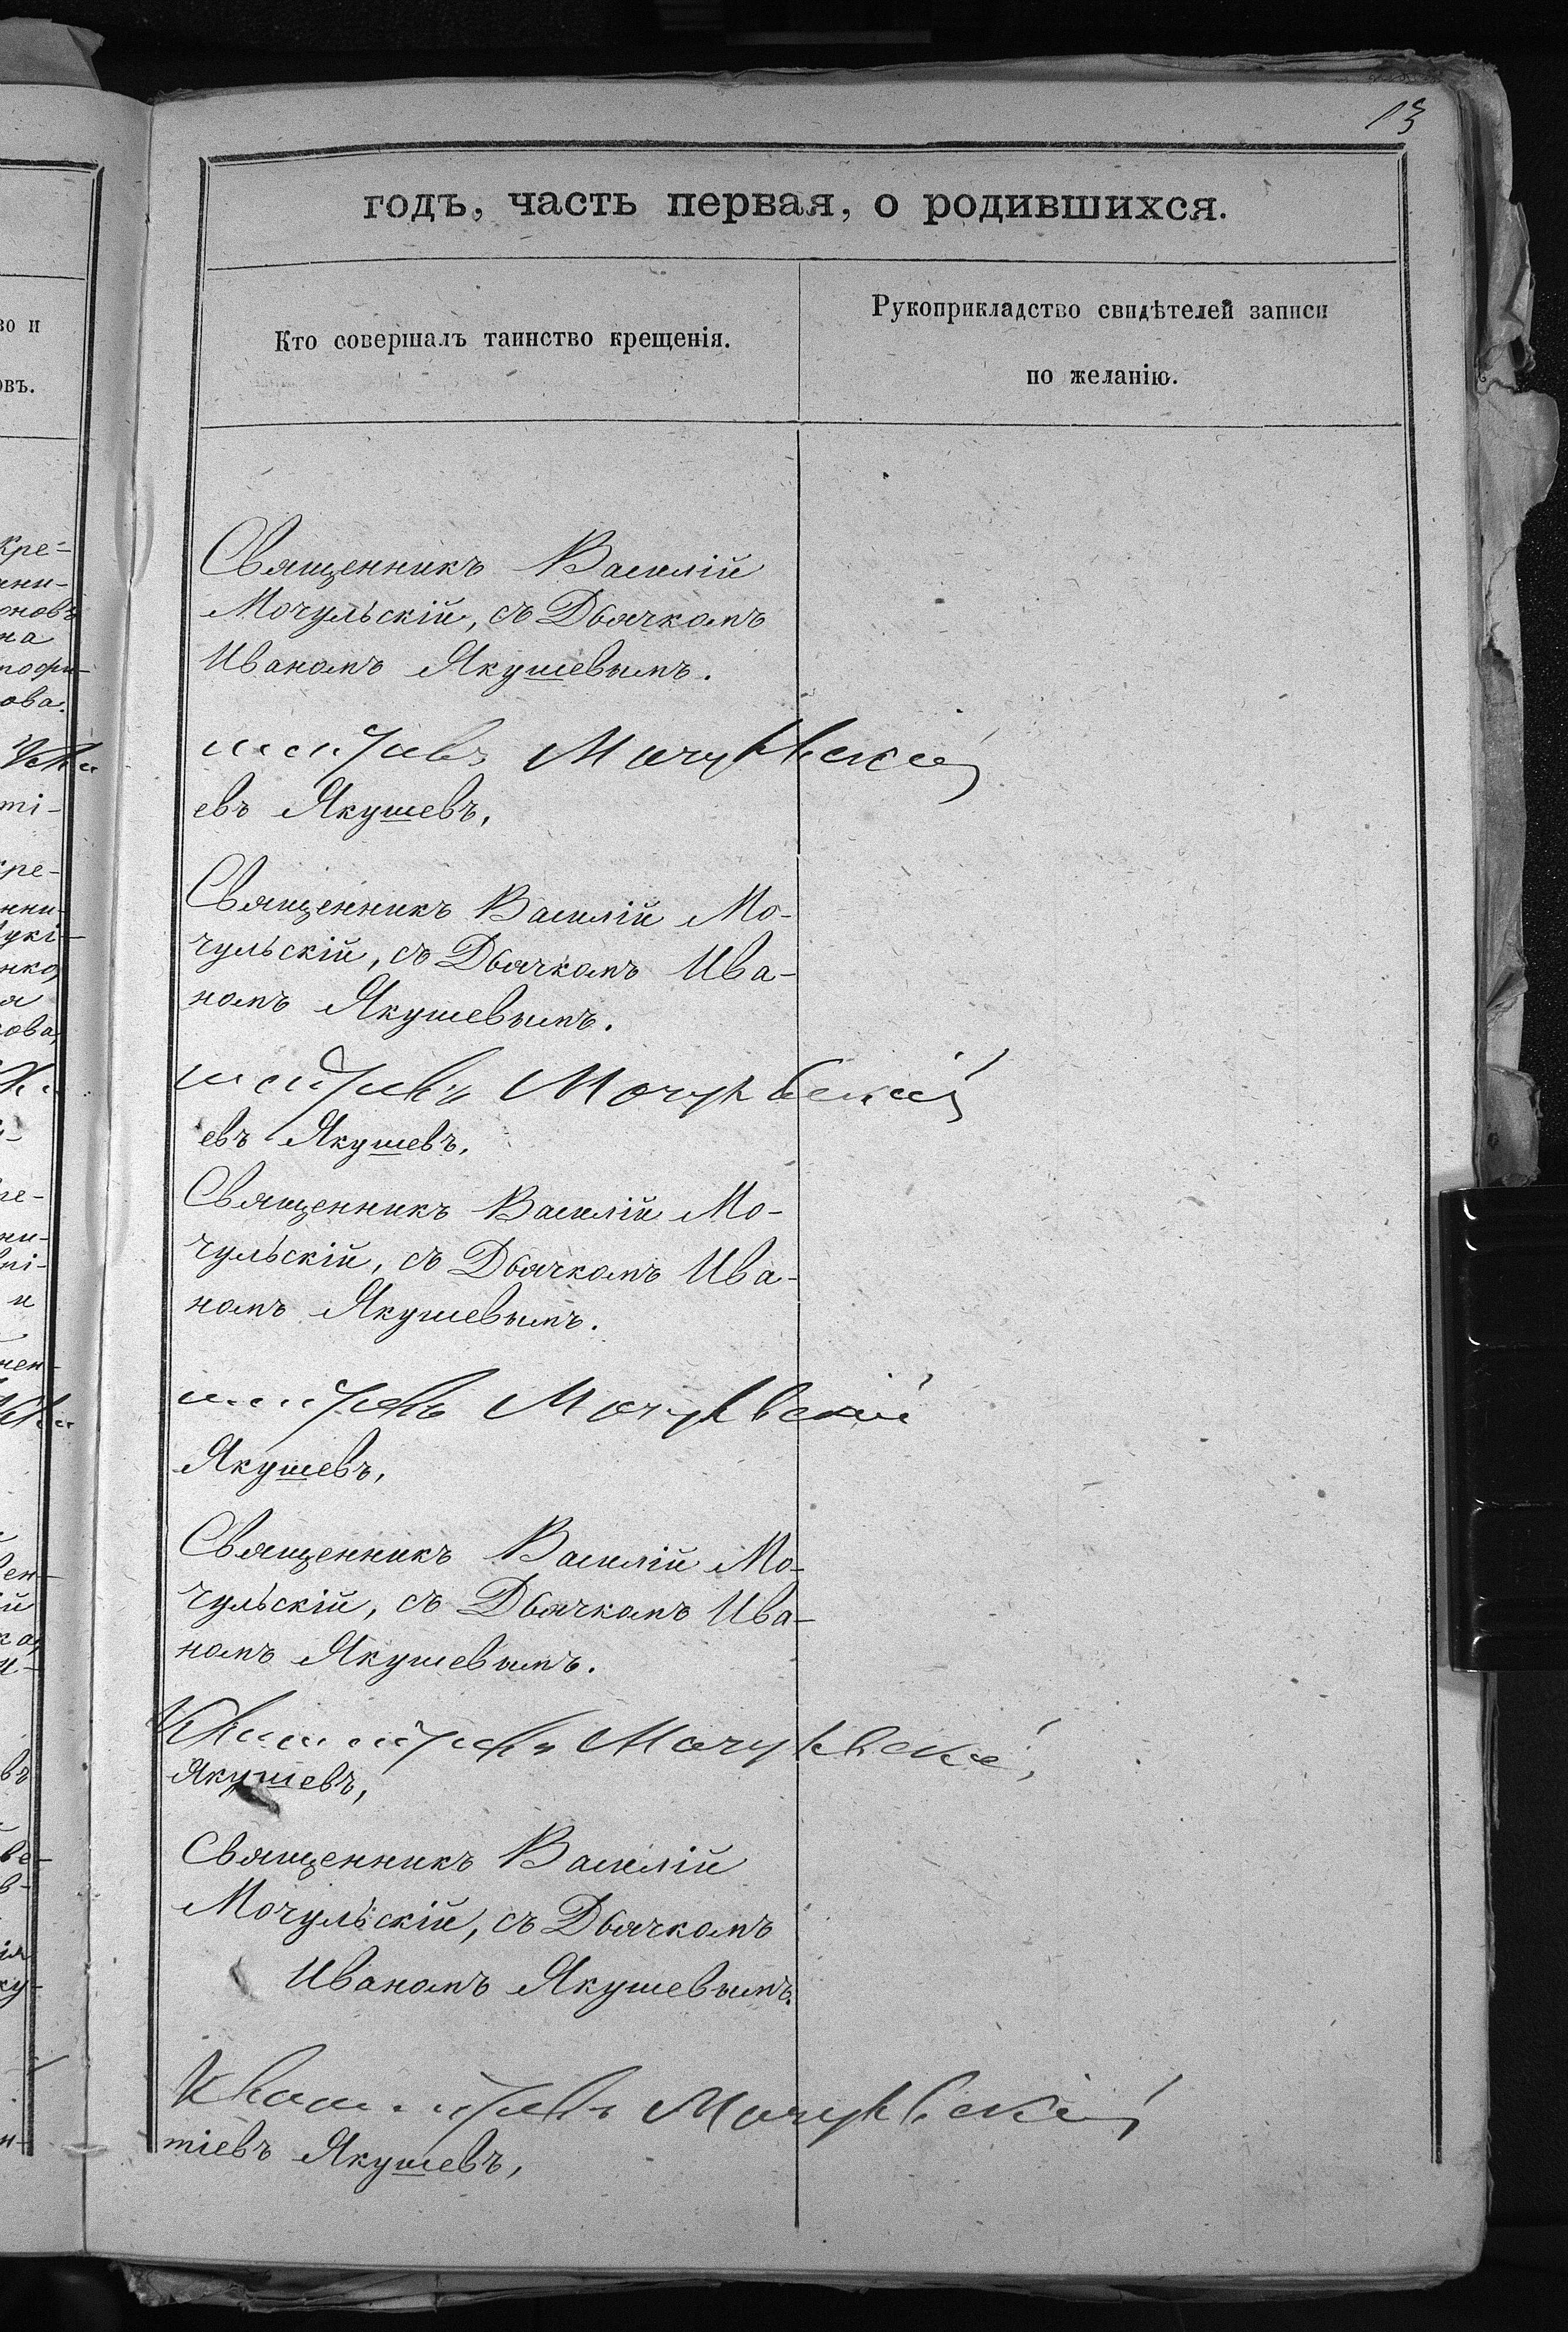 13
годъ, часть первая, о родившихся.
Кто совершалъ таинство крещенія.
Рукоприкладство свидѣтелей записи
по желанію.
во и
овъ.
Священникъ Василій
Мочульскій, съ Дьячкомъ
Иваномъ Якушевымъ.
Мочульскій
евъ Якушевъ,
Священникъ Василій Мо-
чульскій, съ Дьячкомъ Ива-
номъ Якушевымъ.
Мочульскій
евъ Якушевъ.
Священникъ Василій Мо-
чульскій, съ Дьячкомъ Ива-
номъ Якушевымъ.
Мочульскій
Якушевъ,
Священникъ Василій Мо-
чульскій, съ Дьячкомъ Ива-
номъ Якушевымъ.
Мочульскій
Якушевъ,
Священникъ Василій
Мочульскій, съ Дьячкомъ
Иваномъ Якушевымъ.
Мочульскій
тіевъ Якушевъ,